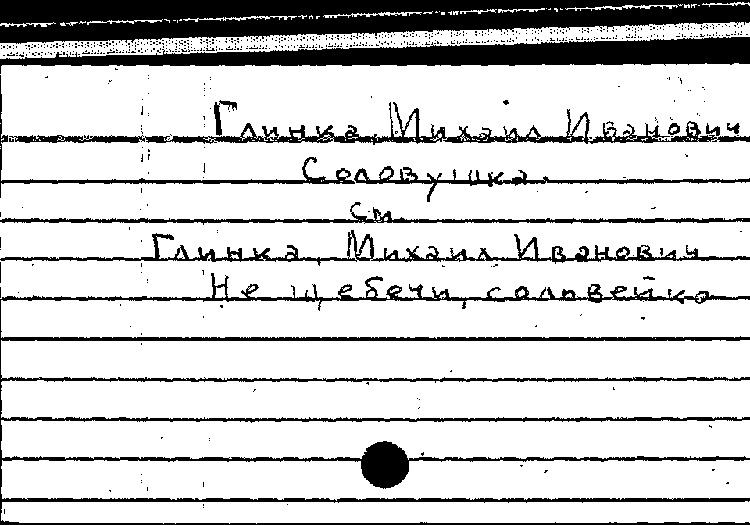 Глинка, Михаил Иванович
Соловушка.
см.
Глинка, Михаил Иванович
Не щебечи, соловейко